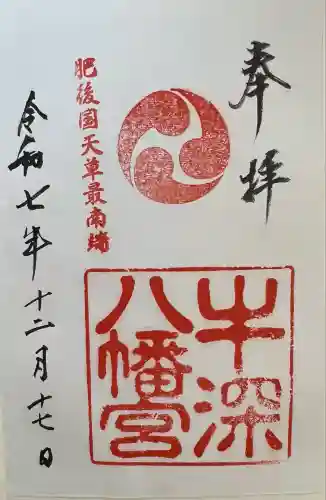 奉拝
牛深
八幡宮
肥後国天草最南端
令和七年十二月十七日